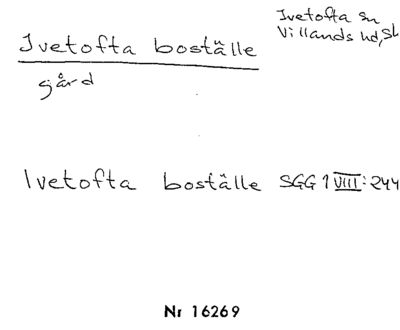 Ivetofta sn
Villands hd, Sk
Ivetofta boställe
gård
Ivetofta boställe SGG 1 VIII: 244
Nr 16269